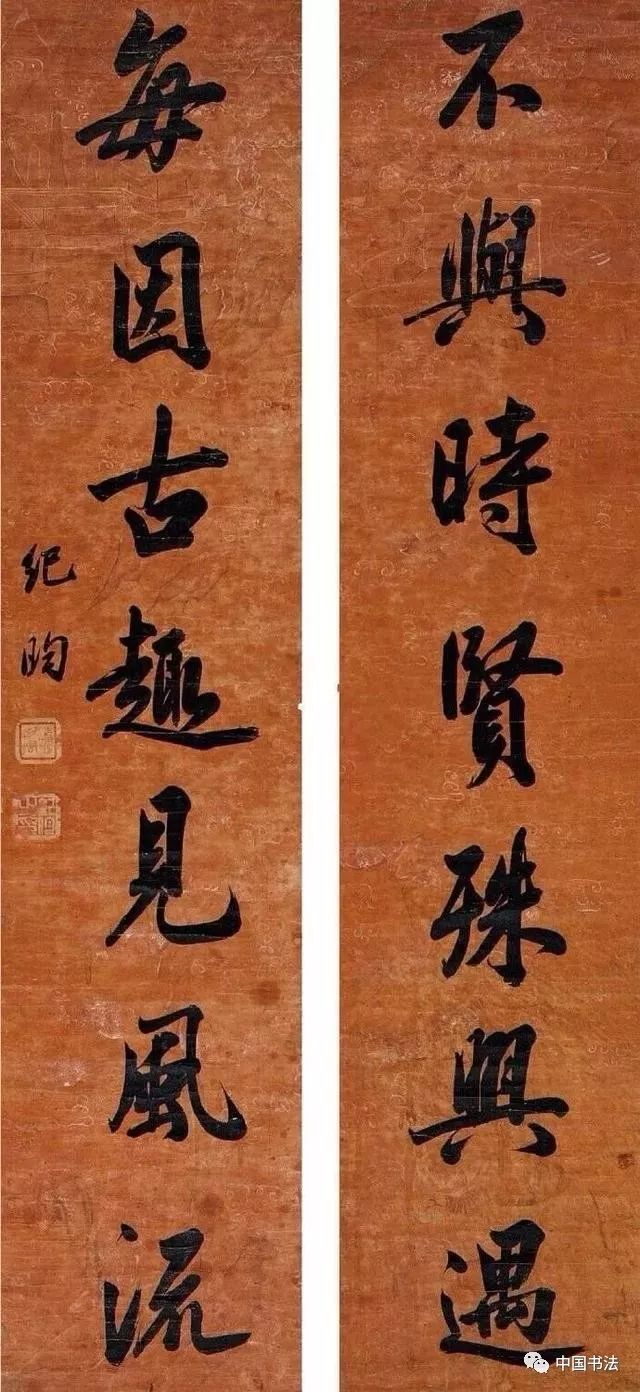 不與時賢殊興遇
每因古趣見風流
紀昀
中国书法